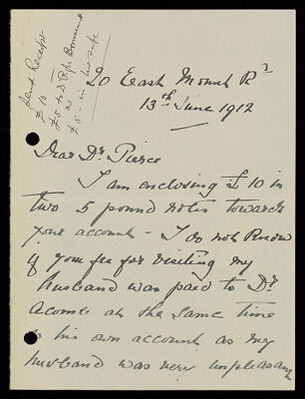 Send Receipt
£10
£5 to Dr P. for
£5 -
20 East Mount Rd
13th June 1912
Dear Dr. Pierce
I am enclosing £10 in
two 5 pound notes towards
your account - I do not know
if your fee for visiting my
husband was paid to Dr.
Acomb at the same time
as his own account as my
husband was very unpleasant